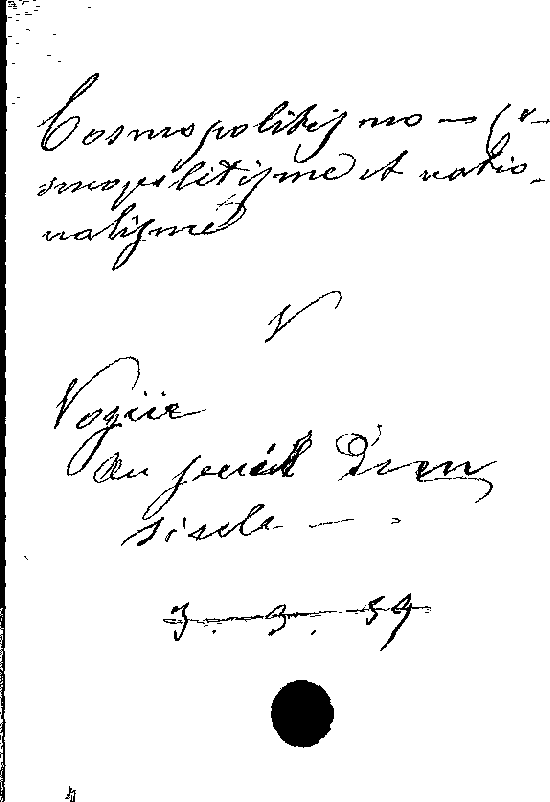 Cosmopolitismo — Co-
smopolitisme et natio-
nalisme
V
Vogüe
Au seuil D'un
siecle — .
3. — 3. 59